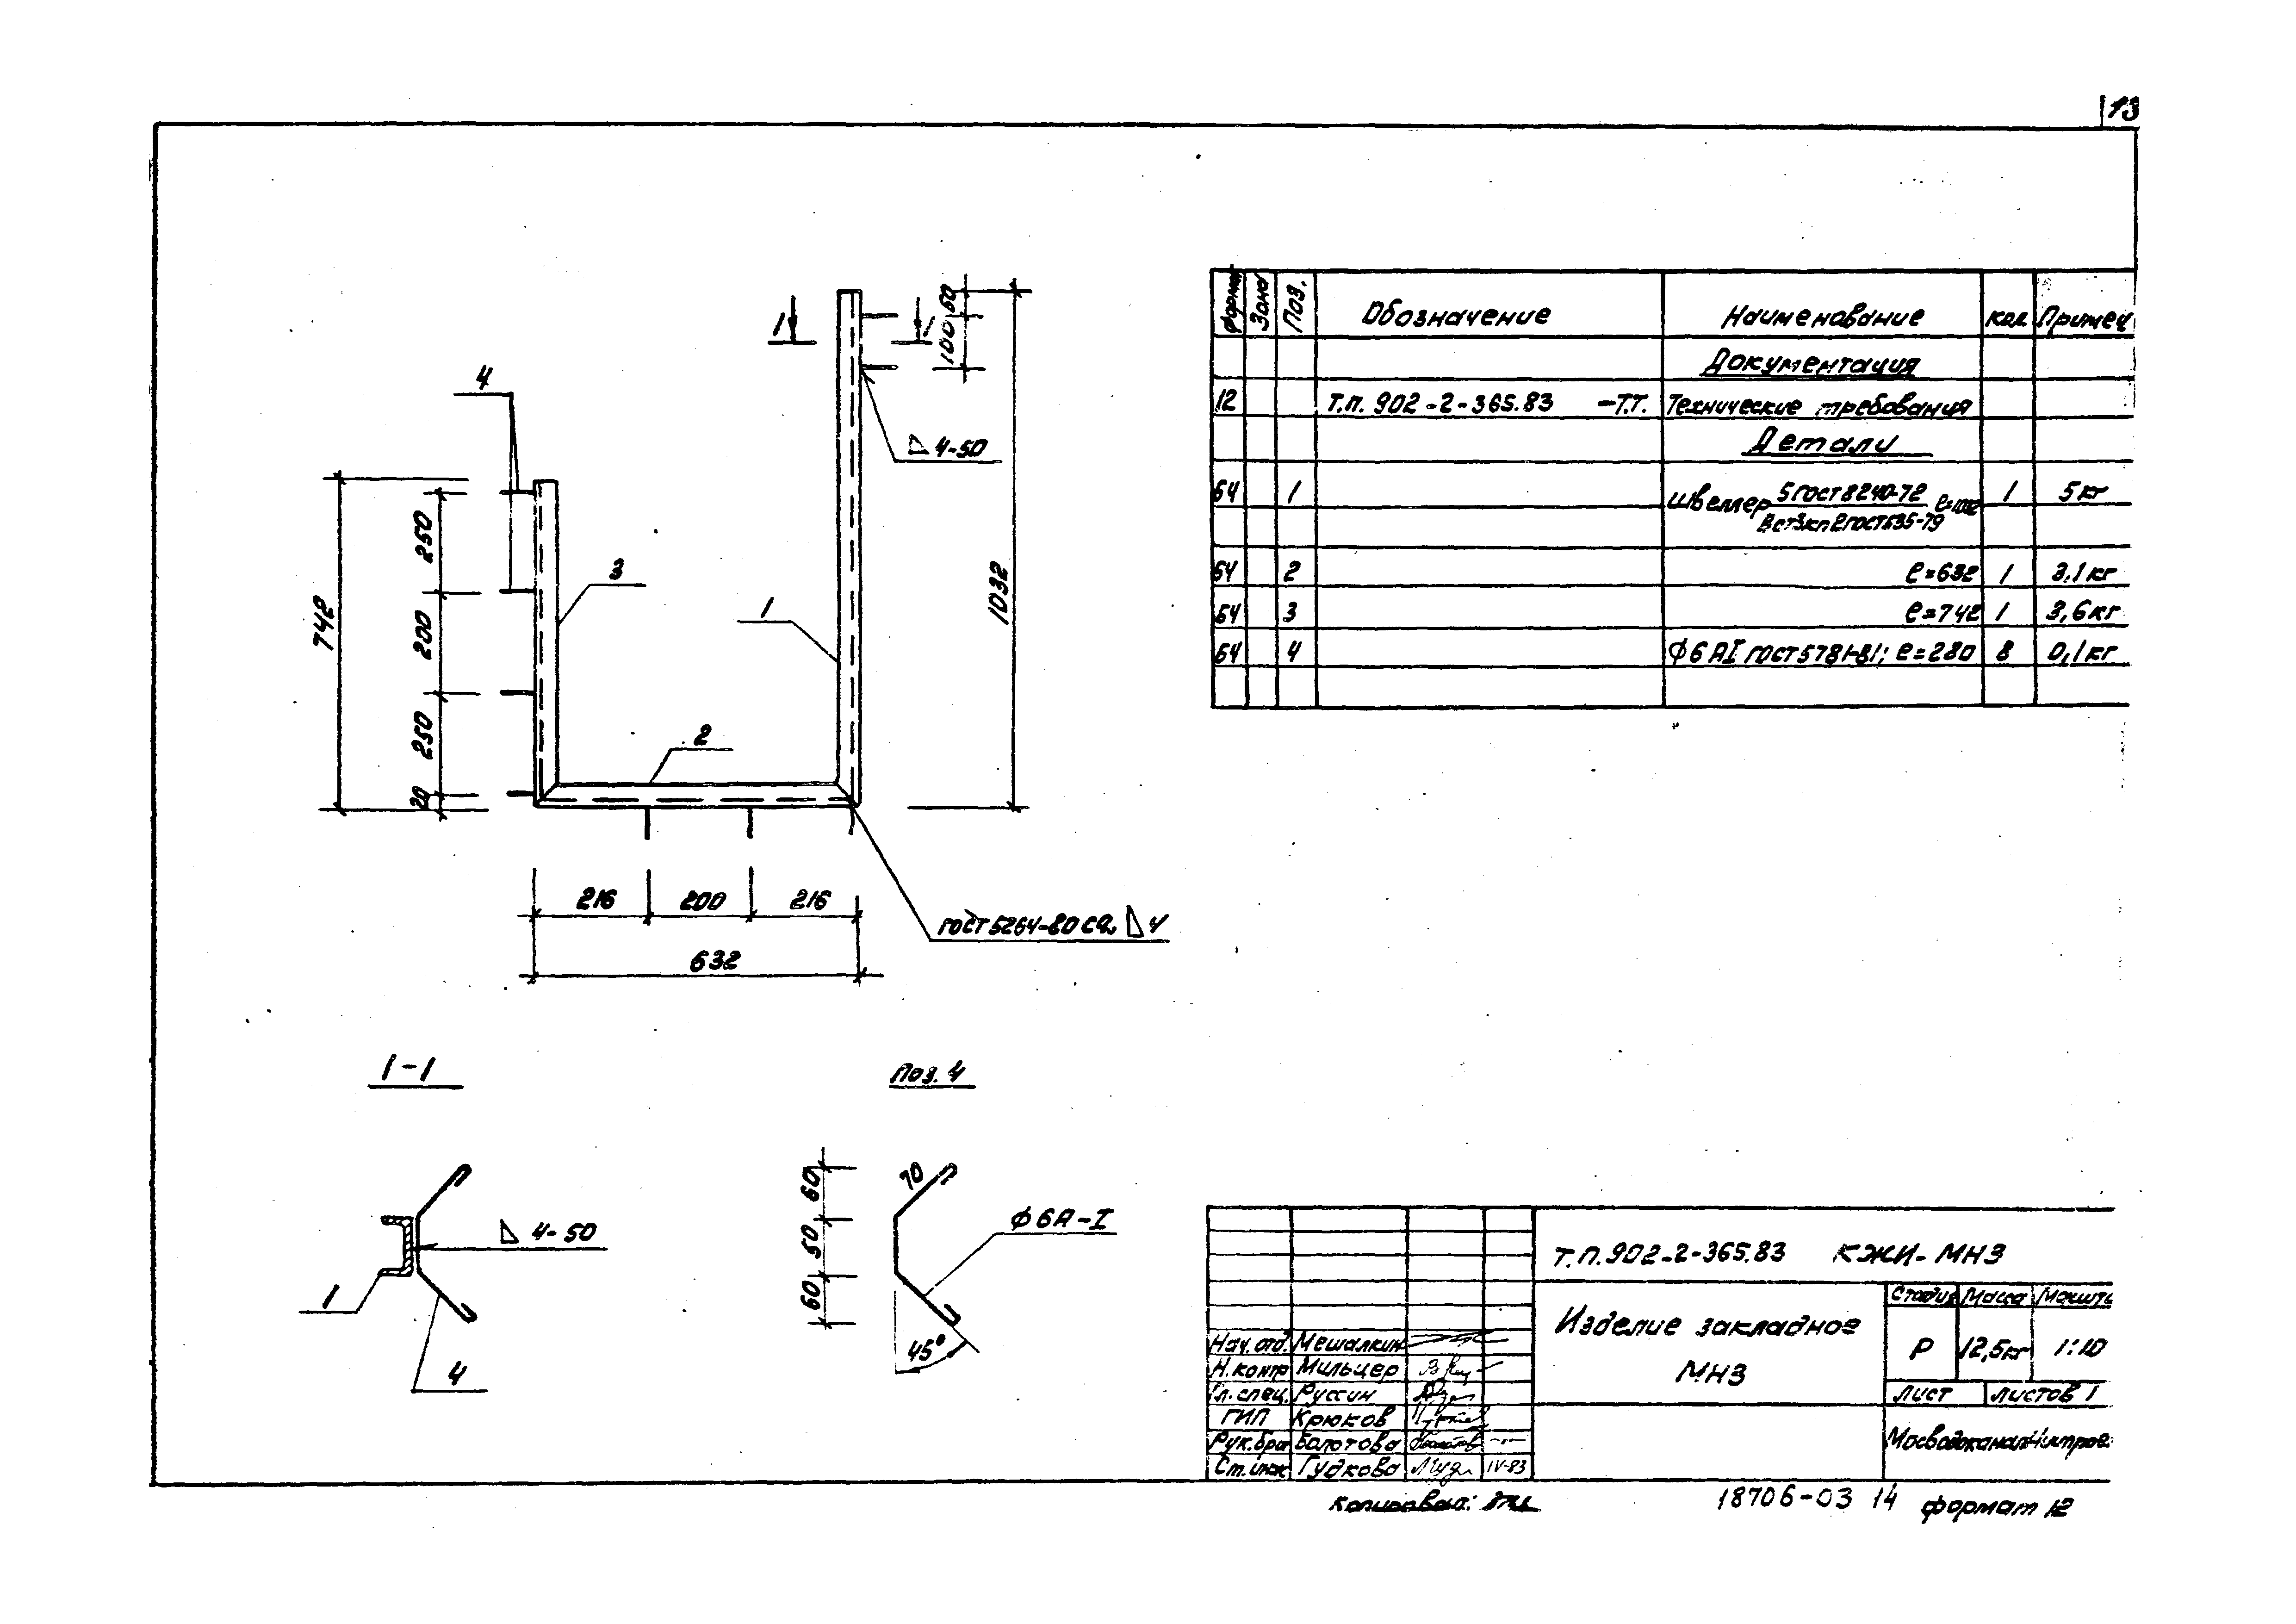 13
1 1
60
100
4
4-50
742
250
200
250
20
3
1
2
1032
216 200 216
632
ГОСТ 5264-80 С2 4
1-1
Поз. 4
4-50
1
4
60
50
60
70
45°
ф 6А-I
Формат Зона Поз. Обозначение Наименование Кол Примеч
Документация
12 Т.П. 902-2-365.83 -Т.Т. Технические требования
Детали
Б4 1 Швеллер 5 ГОСТ 8240-72 ℓ=1032 1 5 кг
Вст3кп2 ГОСТ 535-79
Б4 2 ℓ=632 1 3,1 кг
Б4 3 ℓ=742 1 3,6 кг
Б4 4 ф 6 АI ГОСТ 5781-81; ℓ=280 8 0,1 кг
Т.П. 902-2-365.83 КЖИ-МН3
Изделие закладное
МН3
Стадия Масса Масшт
Р 12,5 кг 1:10
Лист Листов 1
Нач. отд. Мешалкин
Н. контр Мильцер
Гл. спец. Руссин
ГИП Крюков
Рук. бри Болотова
Ст. инж Гудкова IV-83
Копировал:
18706-03 14 формат 12